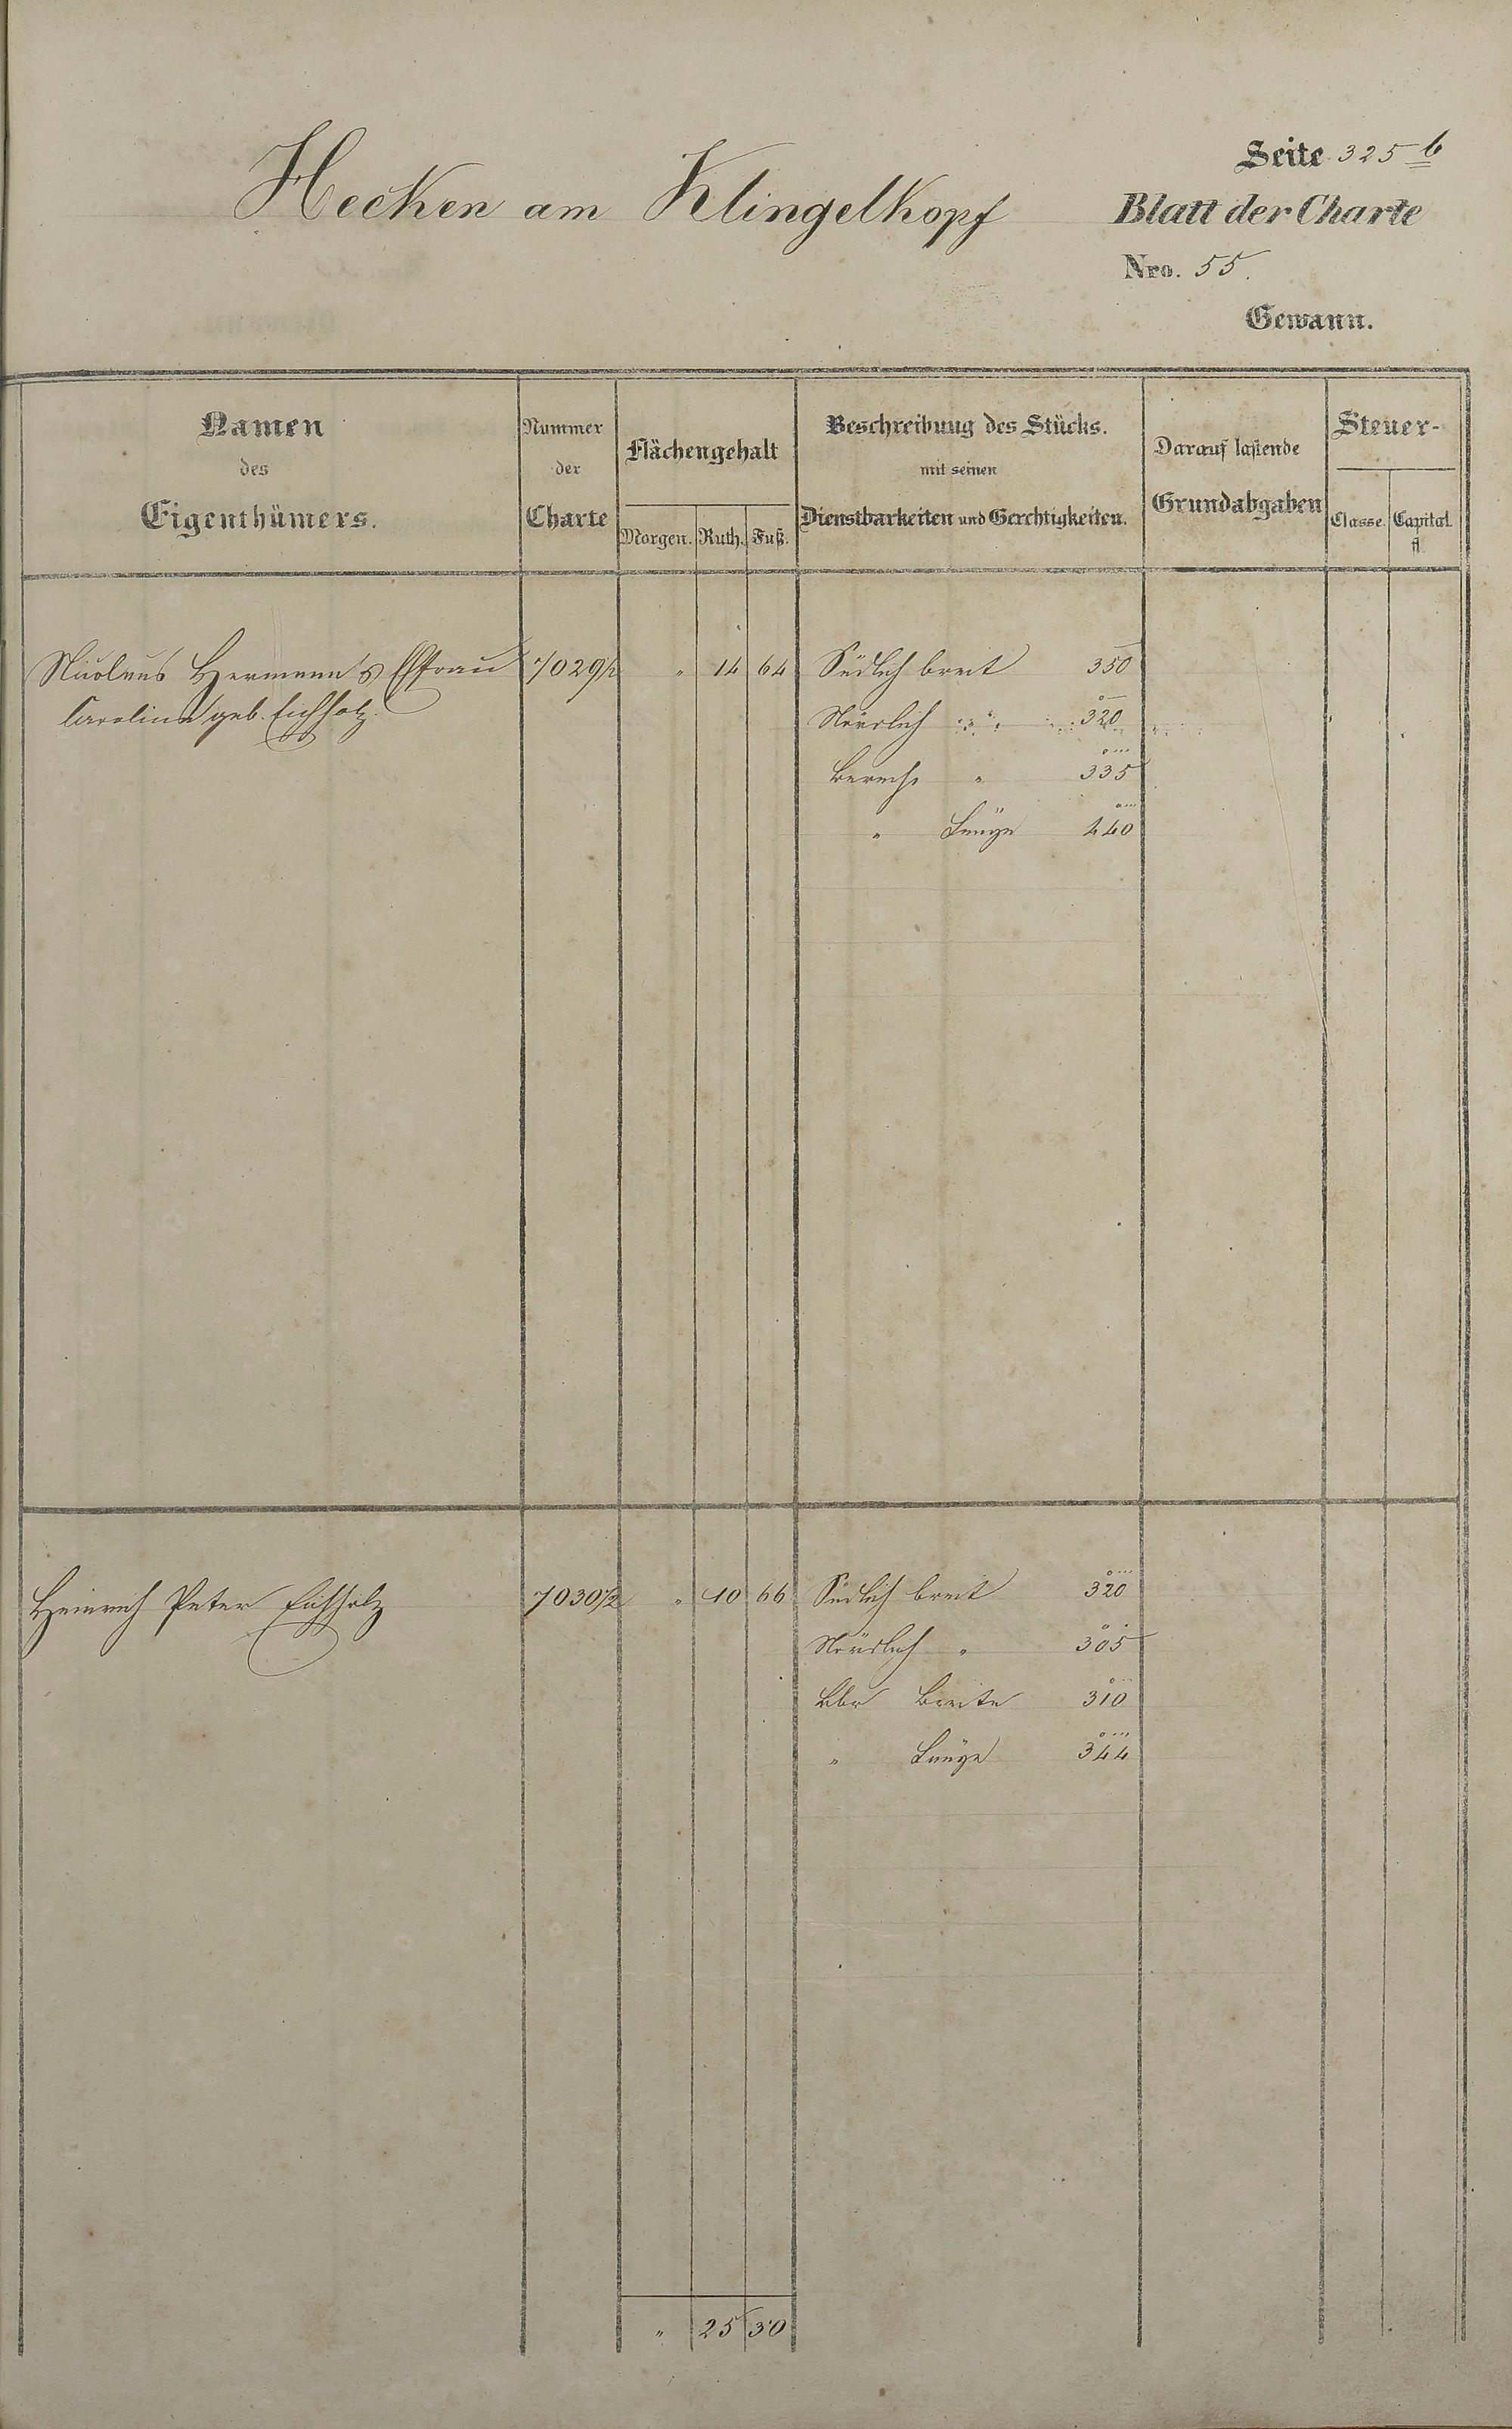 Seite 325 b
Hecken am Klingelkopf
Blatt der Charte
Nro. 55.
Gewann.
Namen des Eigenthümers.
Nummer der Charte
Flächengehalt
Morgen. Ruth. Fuß.
Beschreibung des Stücks. mit seinen Dienstbarkeiten und Gerechtigkeiten.
Darauf lastende Grundabgaben
Steuer-
Classe. Capital. fl.
Nicolaus Hermann's Ehfrau 7029/2 " 14 64 Südlich breit 350
Carolina geb. Eichholz. Nördlich " 320
Berech. " 335
" Länge 440
Heinrich Peter Eichholz 7030/2 " 10 66 Südlich breit 320
Nördlich " 305
Breite 310
" Länge 344
" 25 30